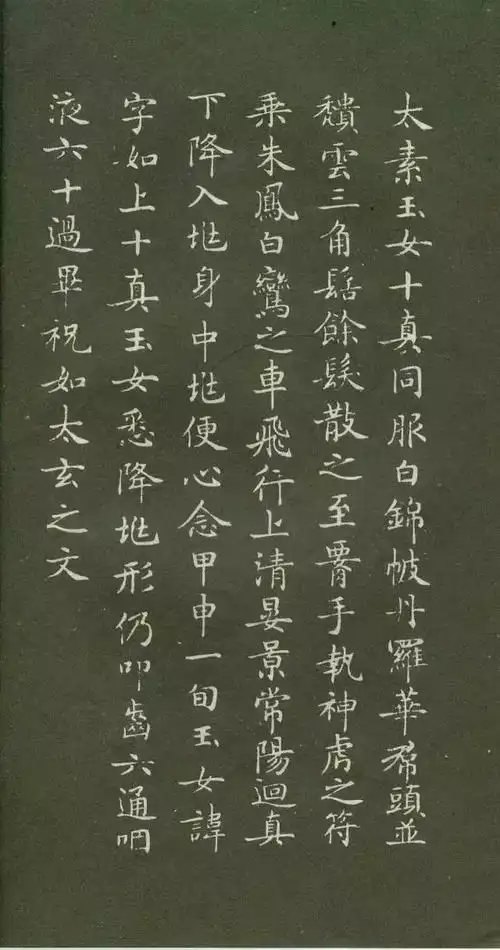 太素玉女十真同服白錦帔丹羅華帬頭並
穨雲三角髻餘髮散之至腰手執神虎之符
乗朱鳳白鸞之車飛行上清晏景常陽迴真
下降入坔身中坔便心念甲申一旬玉女諱
字如上十真玉女悉降坔形仍叩齒六通咽
液六十過畢祝如太玄之文